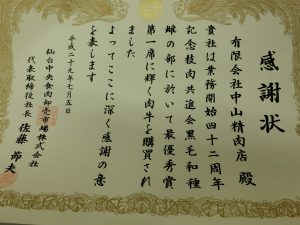 感謝状
有限会社中山精肉店 殿
貴社は業務開始四十二周年
記念枝肉共進会黒毛和種
雌の部に於いて最優秀賞
第一席に輝く肉牛を購買され
ました
よってここに深く感謝の意
を表します
平成二十九年七月五日
仙台中央食肉卸売市場株式会社
代表取締役社長 佐藤 夫